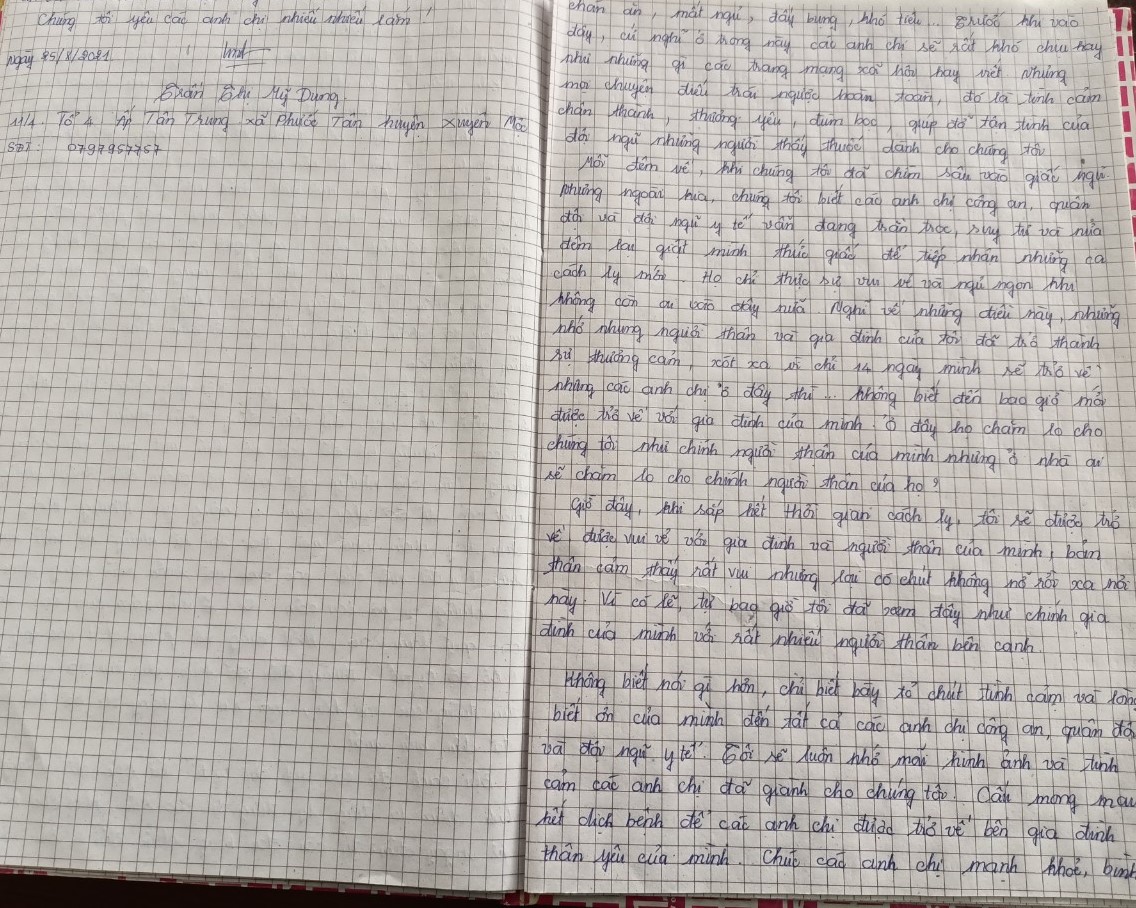 Chúng tôi yêu các anh chị nhiều nhiều lắm!
Ngày 25/8/2021
Trần Thị Mỹ Dung
Tổ 4 Ấp Tân Trung xã Phước Tân huyện Xuyên Mộc
SĐT: 0797957757
chán ăn, mất ngủ, đầy bụng, khó tiêu... Trước khi vào
đây, cứ nghĩ ở trong này các anh chị sẽ rất khó chịu hay
như những gì các trang mạng xã hội hay viết nhưng
mọi chuyện điều trái ngược hoàn toàn, đó là tình cảm
chân thành, thương yêu, đùm bọc, giúp đỡ tận tình của
đội ngũ những người thầy thuốc dành cho chúng tôi.
Mỗi đêm về, khi chúng tôi đã chìm sâu vào giấc ngủ.
Nhưng ngoài kia, chúng tôi biết các anh chị công an, quân
đội và đội ngũ y tế vẫn đang trằn trọc, suy tư và nửa
đêm lại giật mình thức giấc để tiếp nhận những ca
cách ly mới. Họ chỉ thực sự vui vẻ và ngủ ngon khi
không còn ai vào đây nữa. Nghĩ về những điều này, những
nhớ nhung người thân và gia đình của tôi đã trở thành
sự thương cảm, xót xa vì chỉ 14 ngày mình sẽ trở về
nhưng các anh chị ở đây thì... không biết đến bao giờ mới
được trở về với gia đình của mình. Ở đây họ chăm lo cho
chúng tôi như chính người thân của mình nhưng ở nhà ai
sẽ chăm lo cho chính người thân của họ?
Giờ đây, khi sắp hết thời gian cách ly, tôi sẽ được trở
về, được vui vẻ với gia đình và người thân của mình, bản
thân cảm thấy rất vui nhưng lại có chút không nỡ rời xa nơi
này. Vì có lẽ, từ bao giờ tôi đã xem đây như chính gia
đình của mình với rất nhiều người thân bên cạnh.
Không biết nói gì hơn, chỉ biết bày tỏ chút tình cảm và lòng
biết ơn của mình đến tất cả các anh chị công an, quân đội
và đội ngũ y tế. Tôi sẽ luôn nhớ mãi hình ảnh và tình
cảm các anh chị đã giành cho chúng tôi. Cầu mong mau
hết dịch bệnh để các anh chị được trở về bên gia đình
thân yêu của mình. Chúc các anh chị mạnh khỏe, bình